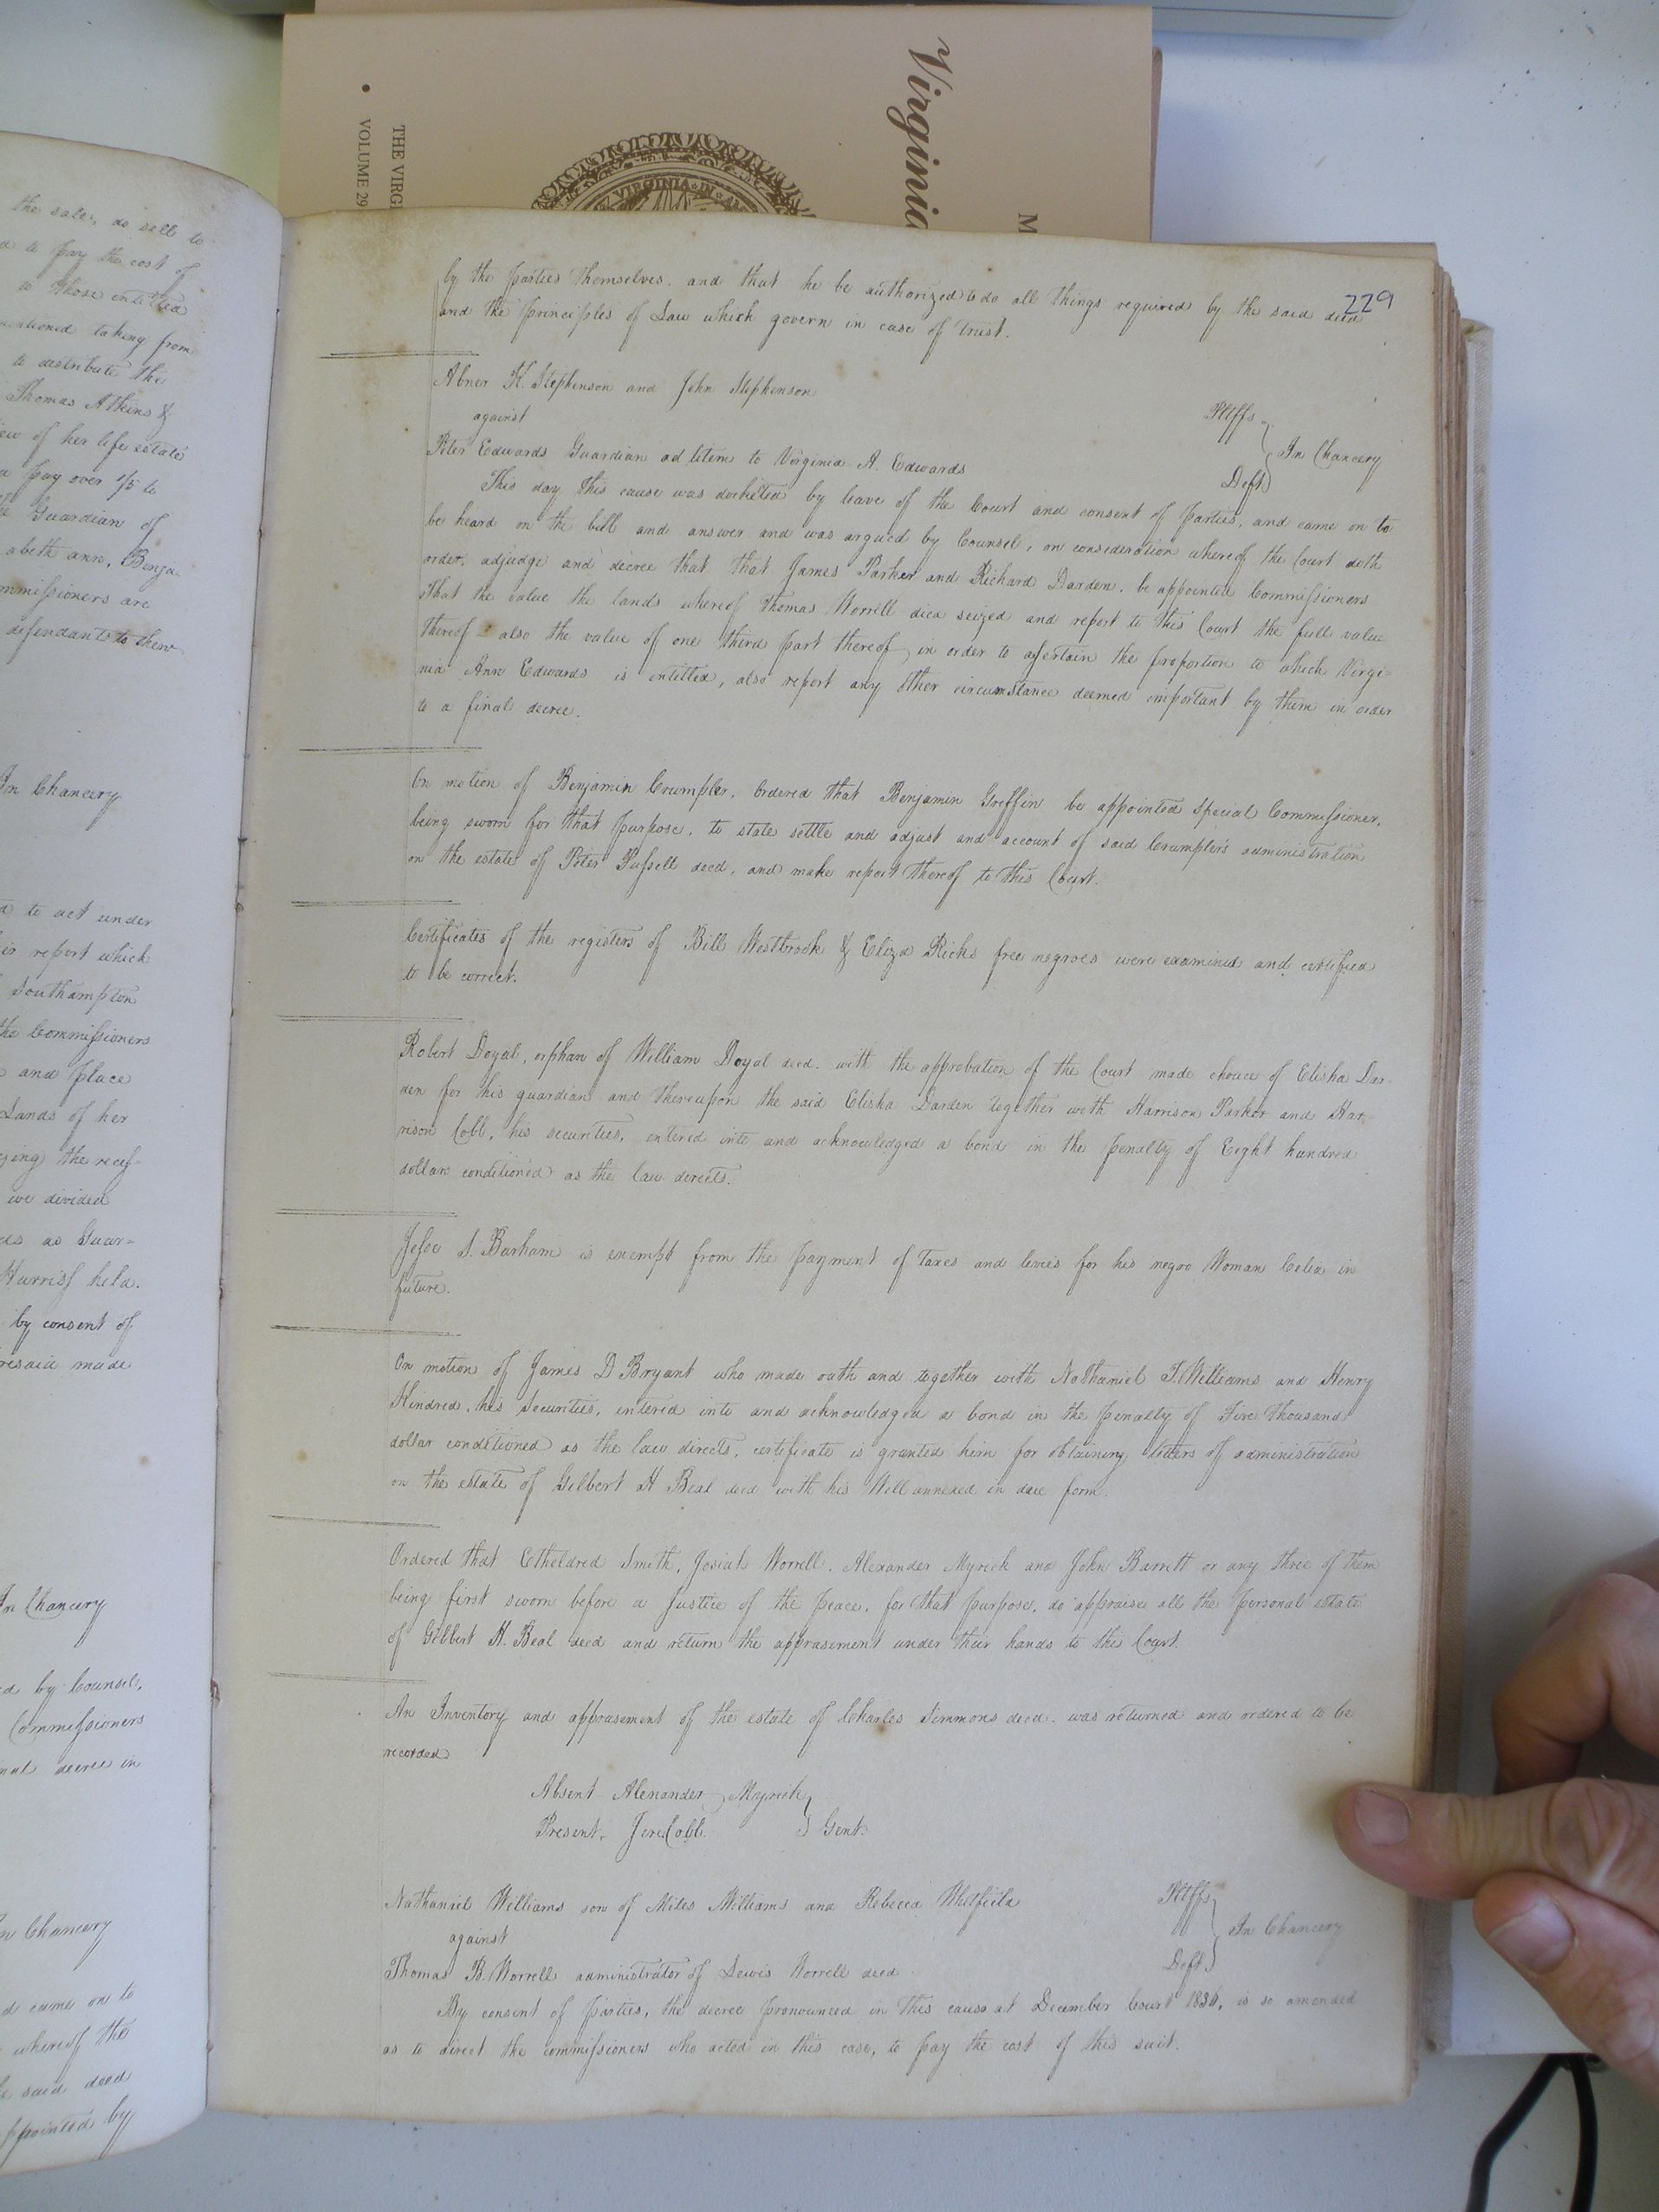 Virginia
THE VIRGI
VOLUME 29
M
VIRGINIA IN
the sale, do sell to
to pay the cost of
to those entitled
mentioned taking from
to distribute the
Thomas Atkins &
of her life estate
pay over 1/5 to
Guardian of
abeth ann, Benja-
mmissioners are
defendants to shew
In Chancery
to act under
report which
Southampton
the Commissioners
and place
Lands of her
the
we divided
as Guar=
Harriss held.
by consent of
resaid made
In Chancery
d by Counsel,
Commissioners
decree in
In Chancery
d came on to
whereof the
said deed
ppointed by
229
by the parties themselves, and that he be authorized to do all things required by the said deed
and the principles of Law which govern in case of trust.
Abner K. Stephenson and John Stephenson Pltffs
against In Chancery
Peter Edwards Guardian ad litem to Virginia A. Edwards Deft
This day this cause was docketed by leave of the Court and consent of parties, and came on to
be heard on the bill and answer and was argued by Counsel, on consideration whereof the Court doth
order, adjudge and decree that that James Parker and Richard Darden, be appointed Commissioners
that the value the lands whereof Thomas Worrell died seized and report to this Court the full value
thereof also the value of one third part thereof in order to assertain the proportion to which Virgi=
nia Ann Edwards is entitled, also report any other circumstance deemed important by them in order
to a final decree.
On motion of Benjamin Crumpler, Ordered that Benjamin Griffin be appointed Special Commissioner,
being sworn for that purpose, to state settle and adjust and account of said Crumpler's administration
on the estate of Peter Pussell decd, and make report thereof to this Court.
Certificates of the registers of Bill Westbrook & Eliza Ricks free negroes were examined and certified
to be correct.
Robert Doyal, orphan of William Doyal decd. with the approbation of the Court made choice of Elisha Dar-
den for his guardian and thereupon the said Elisha Darden together with Harrison Parker and Har-
rison Cobb, his securities, entered into and acknowledged a bond in the penalty of Eight hundred
dollars conditioned as the law directs.
Jesse S. Barham is exempt from the payment of taxes and levies for his negro Woman Celia in
future.
On motion of James D Bryant who made oath and together with Nathaniel T. Williams and Henry
Kindred, his securities, entered into and acknowledged a bond in the penalty of Five thousand
dollar conditioned as the law directs, certificate is granted him for obtaining letters of administration
on the estate of Gilbert H Beal decd with his Will annexed in due form.
Ordered that Etheldred Smith, Josiah Worrell, Alexander Myrick and John Barrett or any three of them
being first sworn before a Justice of the Peace, for that purpose, do appraise all the personal estate
of Gilbert H. Beal decd and return the apprasement under their hands to the Court.
An Inventory and apprasement of the estate of Charles Simmons decd. was returned and ordered to be
recorded
Absent Alexander Myrick
Present. Jere Cobb. Gent.
Nathaniel Williams son of Miles Williams and Rebecca Whitfield Pltff
against In Chancery
Thomas B. Worrell administrator of Lewis Worrell decd Deft
By consent of parties, the decree pronounced in this cause at December Court 1836, is so amended
as to direct the commissioners who acted in this case, to pay the cost of this suit.